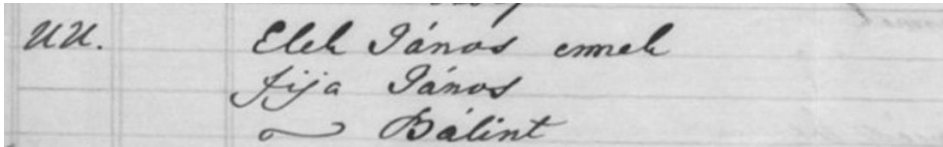 UU. Elek János ennek
fija János
〃 Bálint